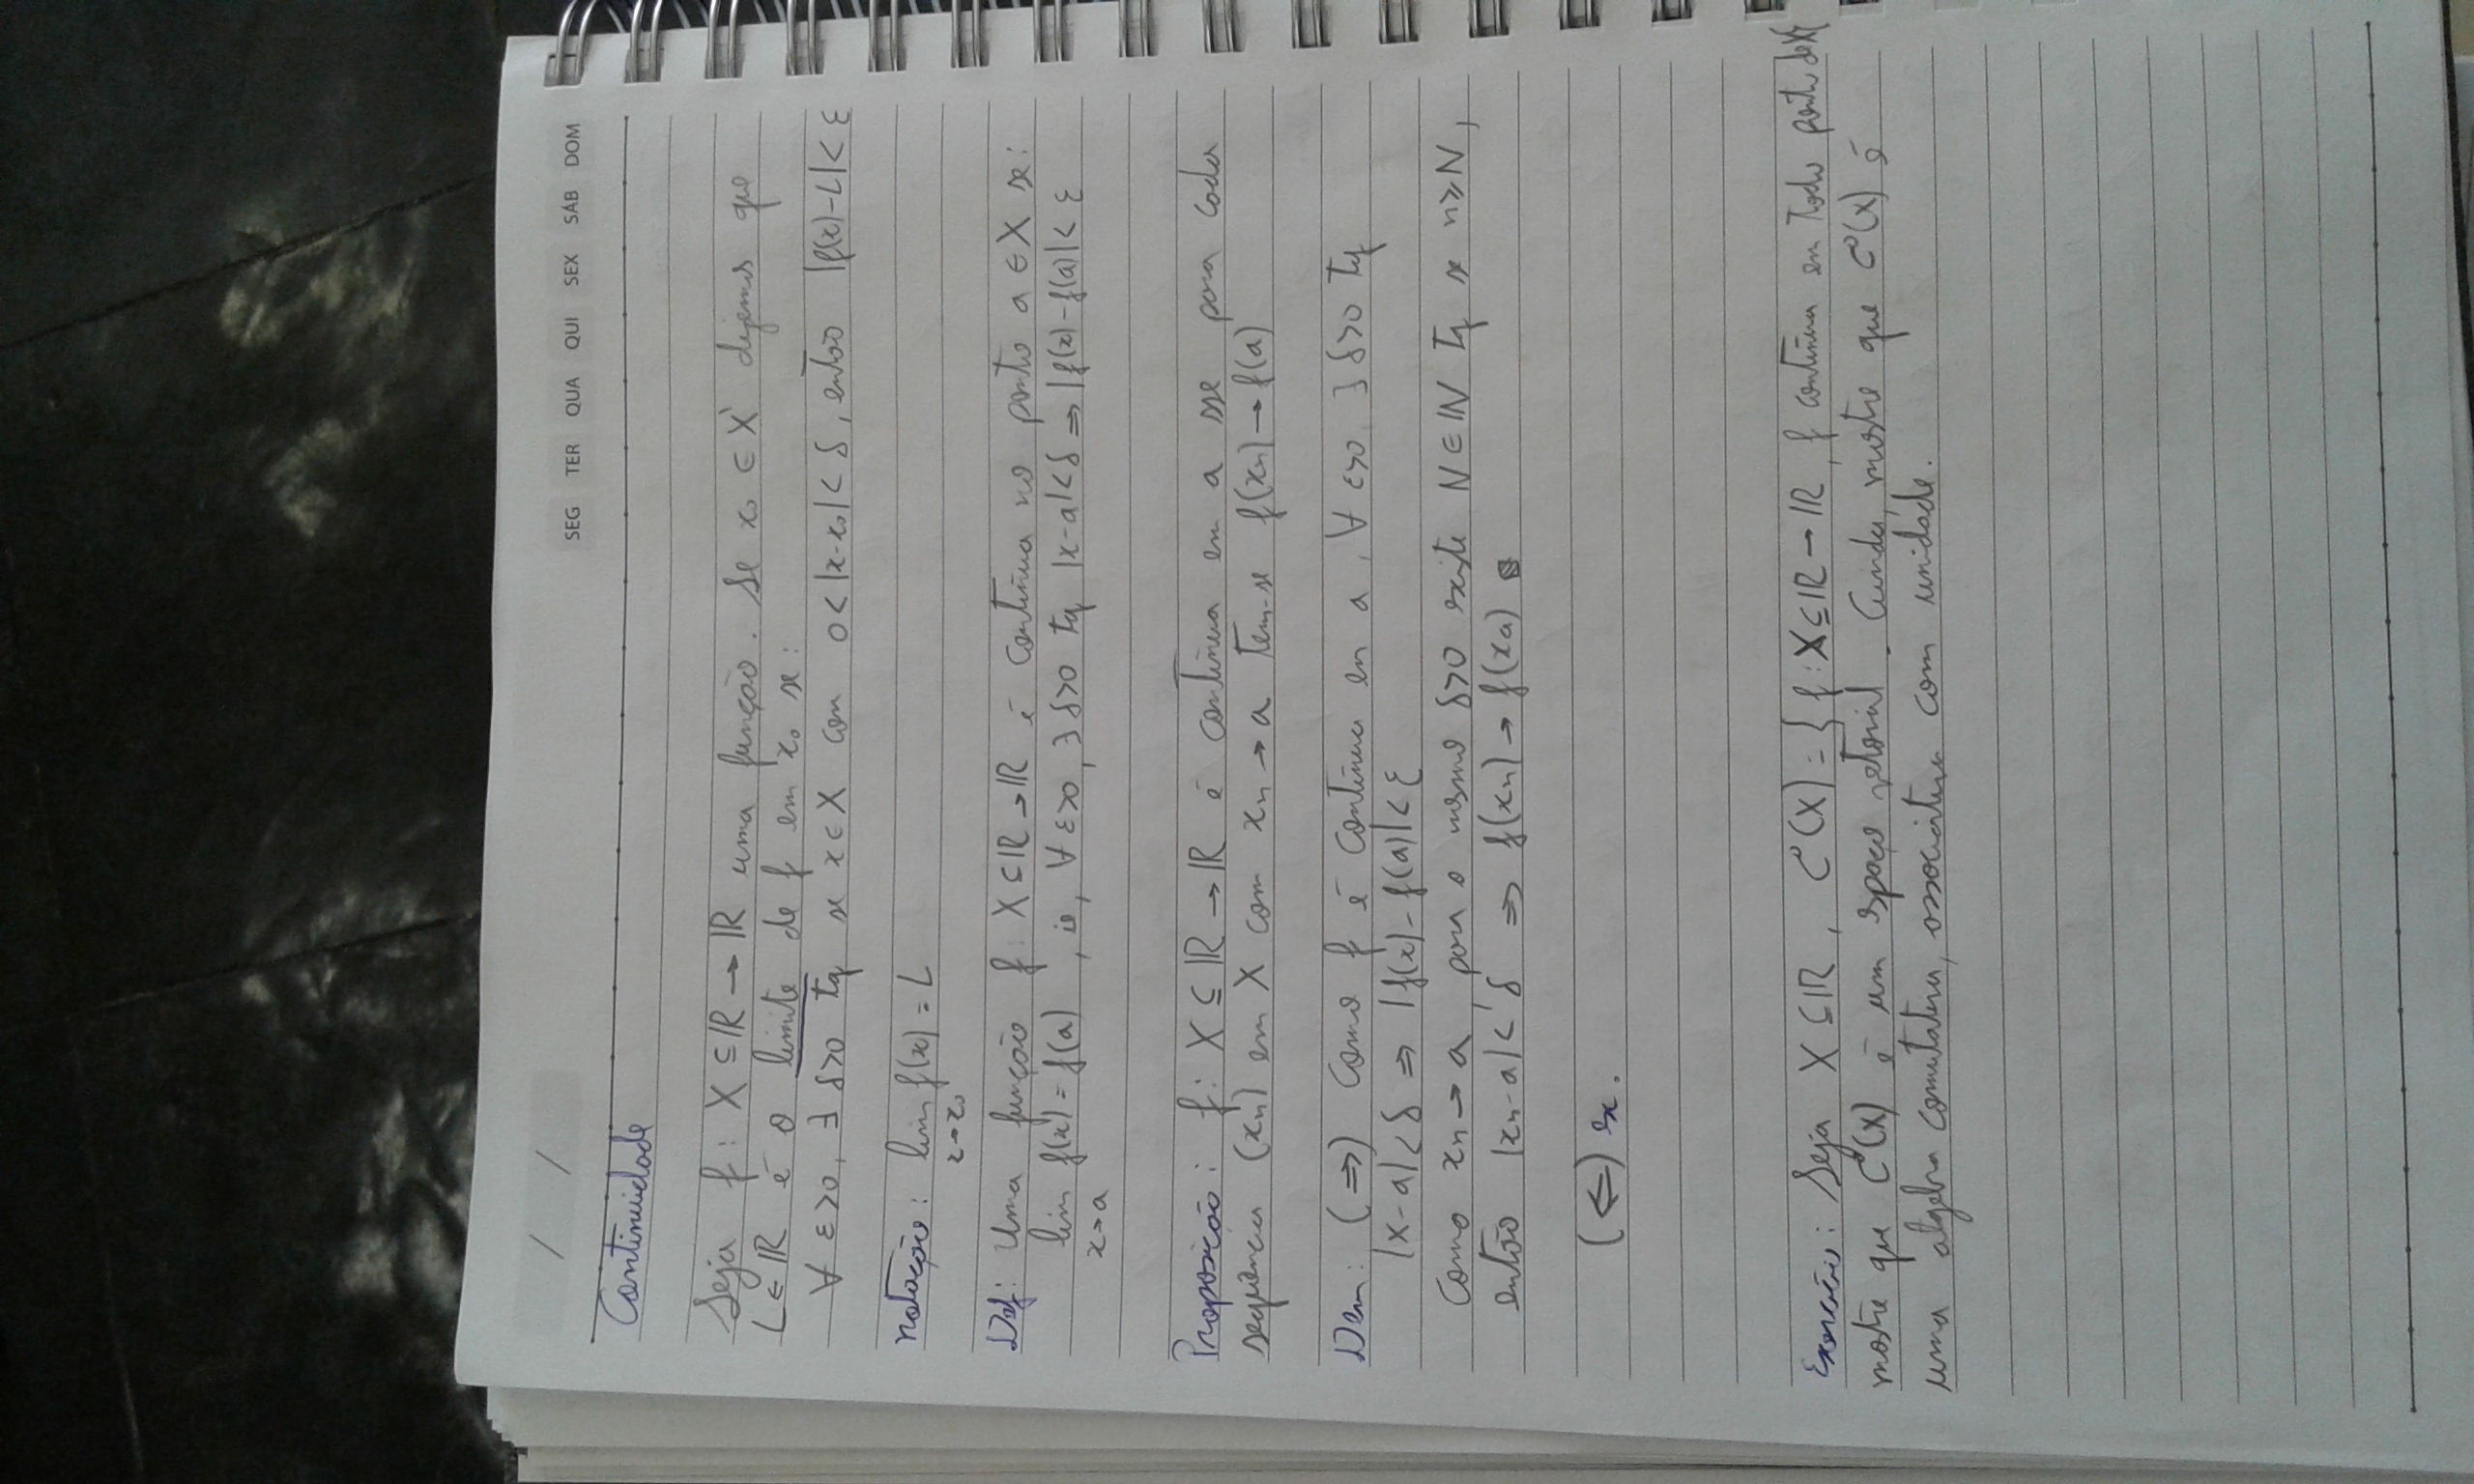 / /
SEG TER QUA QUI SEX SÁB DOM
Continuidade
Seja f: X ⊆ ℝ → ℝ uma função. Se x₀ ∈ X' dizemos que
L ∈ ℝ é o limite de f em x₀ se:
∀ ε>0, ∃ δ>0 tq se x ∈ X com 0<|x-x₀|<δ, então |f(x)-L|<ε
notação: lim f(x) = L
x→x₀
Def: Uma função f: X ⊆ ℝ → ℝ é contínua no ponto a ∈ X se:
lim f(x) = f(a), ie, ∀ ε>0, ∃ δ>0 tq |x-a|<δ ⇒ |f(x)-f(a)|<ε
x→a
Proposição: f: X ⊆ ℝ → ℝ é contínua em a sse para cada
sequência (xₙ) em X com xₙ → a tem-se f(xₙ) → f(a)
Dem: (⇒) Como f é contínua em a, ∀ ε>0 ∃ δ>0 tq
|x-a|<δ ⇒ |f(x)-f(a)|<ε
Como xₙ → a, para o mesmo δ>0 existe N ∈ ℕ tq se n≥N,
então |xₙ-a|<δ ⇒ f(xₙ) → f(xa)
(⇐) ex.
Exercício: Seja X ⊆ ℝ, C⁰(X) = { f: X ⊆ ℝ → ℝ, f contínua em todo ponto de X}
mostre que C⁰(X) é um espaço vetorial. Ainda, mostre que C⁰(X) é
uma algebra comutativa, associativa com unidade.